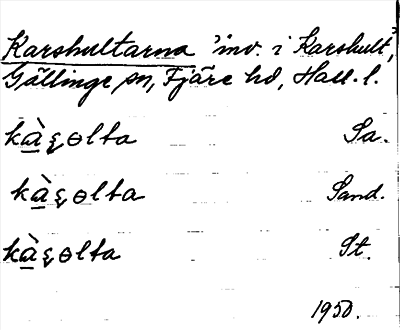 Karshultarna 'inv. i Karshult',
Gällinge sn, Fjäre hd, Hall. l.
kàʂɵlta Sa.
kàʂɵlta Sand.
kàʂɵlta St.
1950.